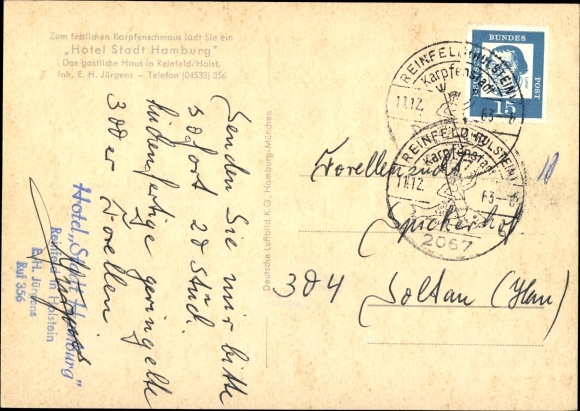 Zum festlichen Karpfenschmaus lädt Sie ein
„Hotel Stadt Hamburg"
Das gastliche Haus in Reinfeld/Holst.
Inh. E. H. Jürgens – Telefon (04533) 356
Senden Sie mir bitte
sofort 20 Stück
küchenfertige geringelte
300er Forellen.
Hotel „Stadt Hamburg"
Reinfeld in Holstein
E. H. Jürgens
Ruf 356
Deutsche Luftbild K.G., Hamburg-München
DEUTSCHE
BUNDES
POST
15
REINFELD (HOLSTEIN)
Karpfenstadt
11.12. 63-8
REINFELD (HOLSTEIN)
Karpfenstadt
11.12. 63-8
2067
Forellenzucht
10
304 Soltau (Han)